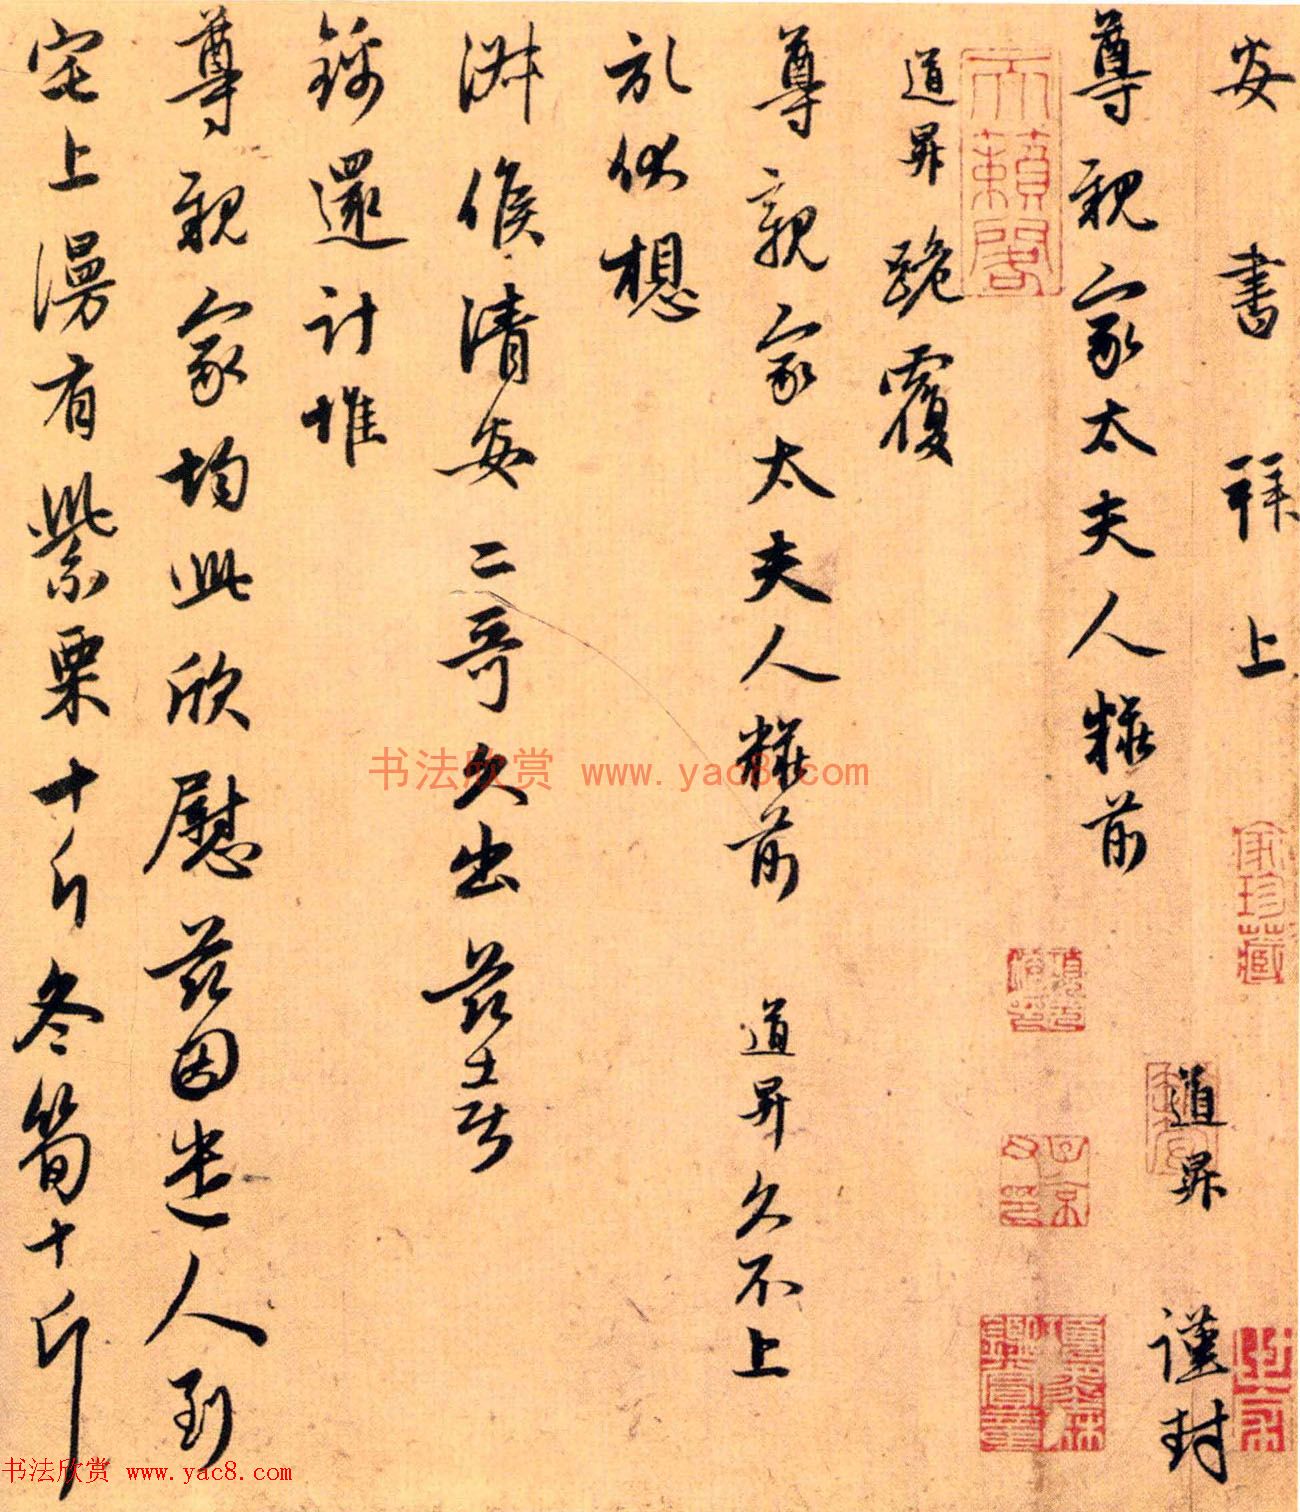 安書拜上
尊親家太夫人粧前
道昇謹封
道昇跪覆
尊親家太夫人粧前 道昇久不上
狀伏想
淋候清安二哥久出茲喜
錦還計惟
尊親家均此欣慰茲因遣人到
宅上漫有紫栗十斤冬笋十斤
天籟閣
家珍藏
书法欣赏 www.yac8.com
书法欣赏 www.yac8.com